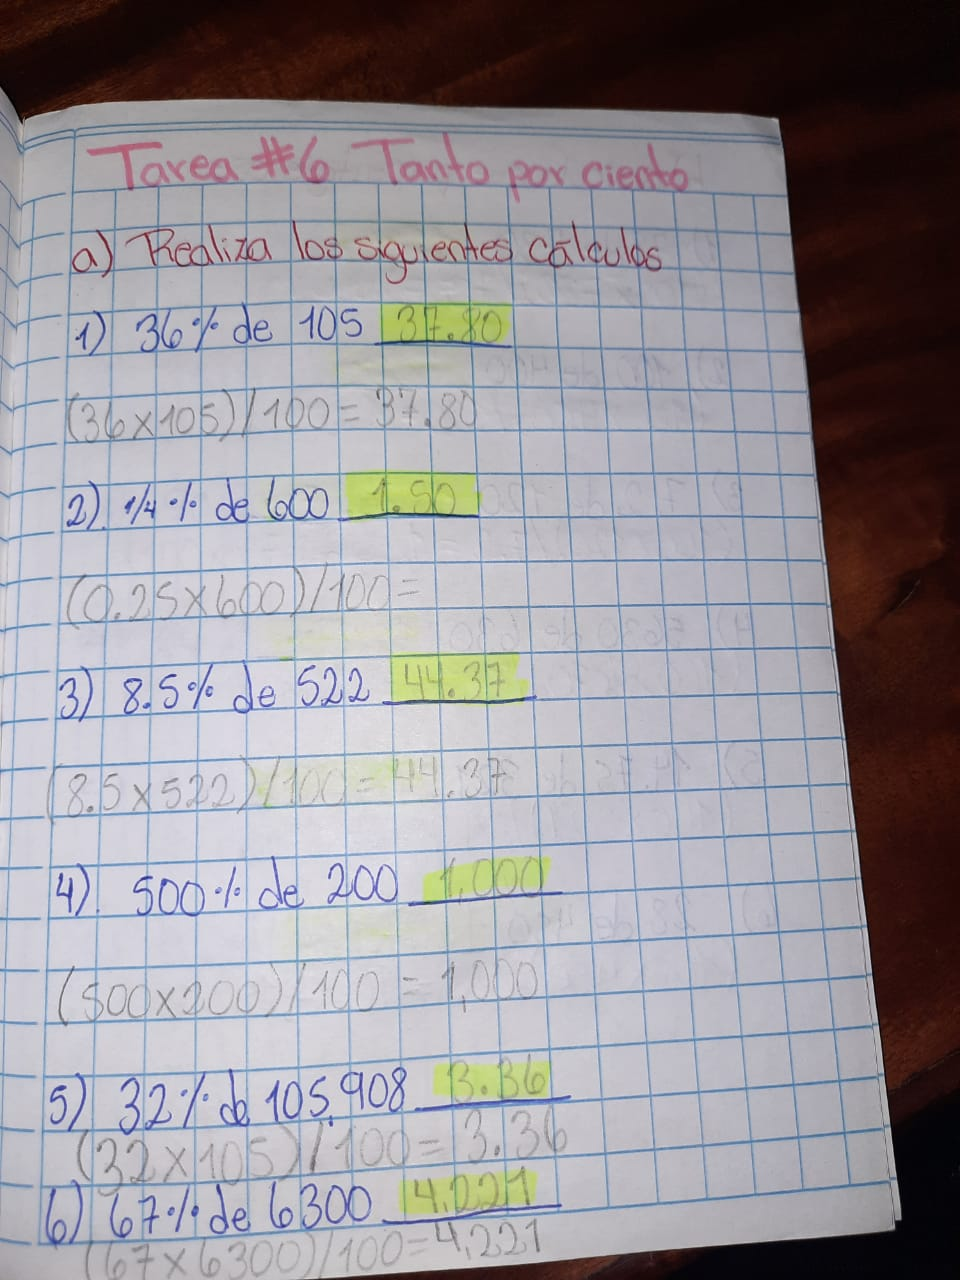 Tarea #6 Tanto por ciento
a) Realiza los siguientes cálculos
1) 36% de 105 37.80
(36x105)/100=37.80
2) 1/4 % de 600 1.50
(0.25x600)/100=
3) 8.5% de 522 44.37
(8.5x522)/100=44.37
4) 500% de 200 1,000
(500x200)/100=1,000
5) 32% de 105,908 3.36
(32x105)/100=3.36
6) 67% de 6300 4,221
(67x6300)/100=4,221